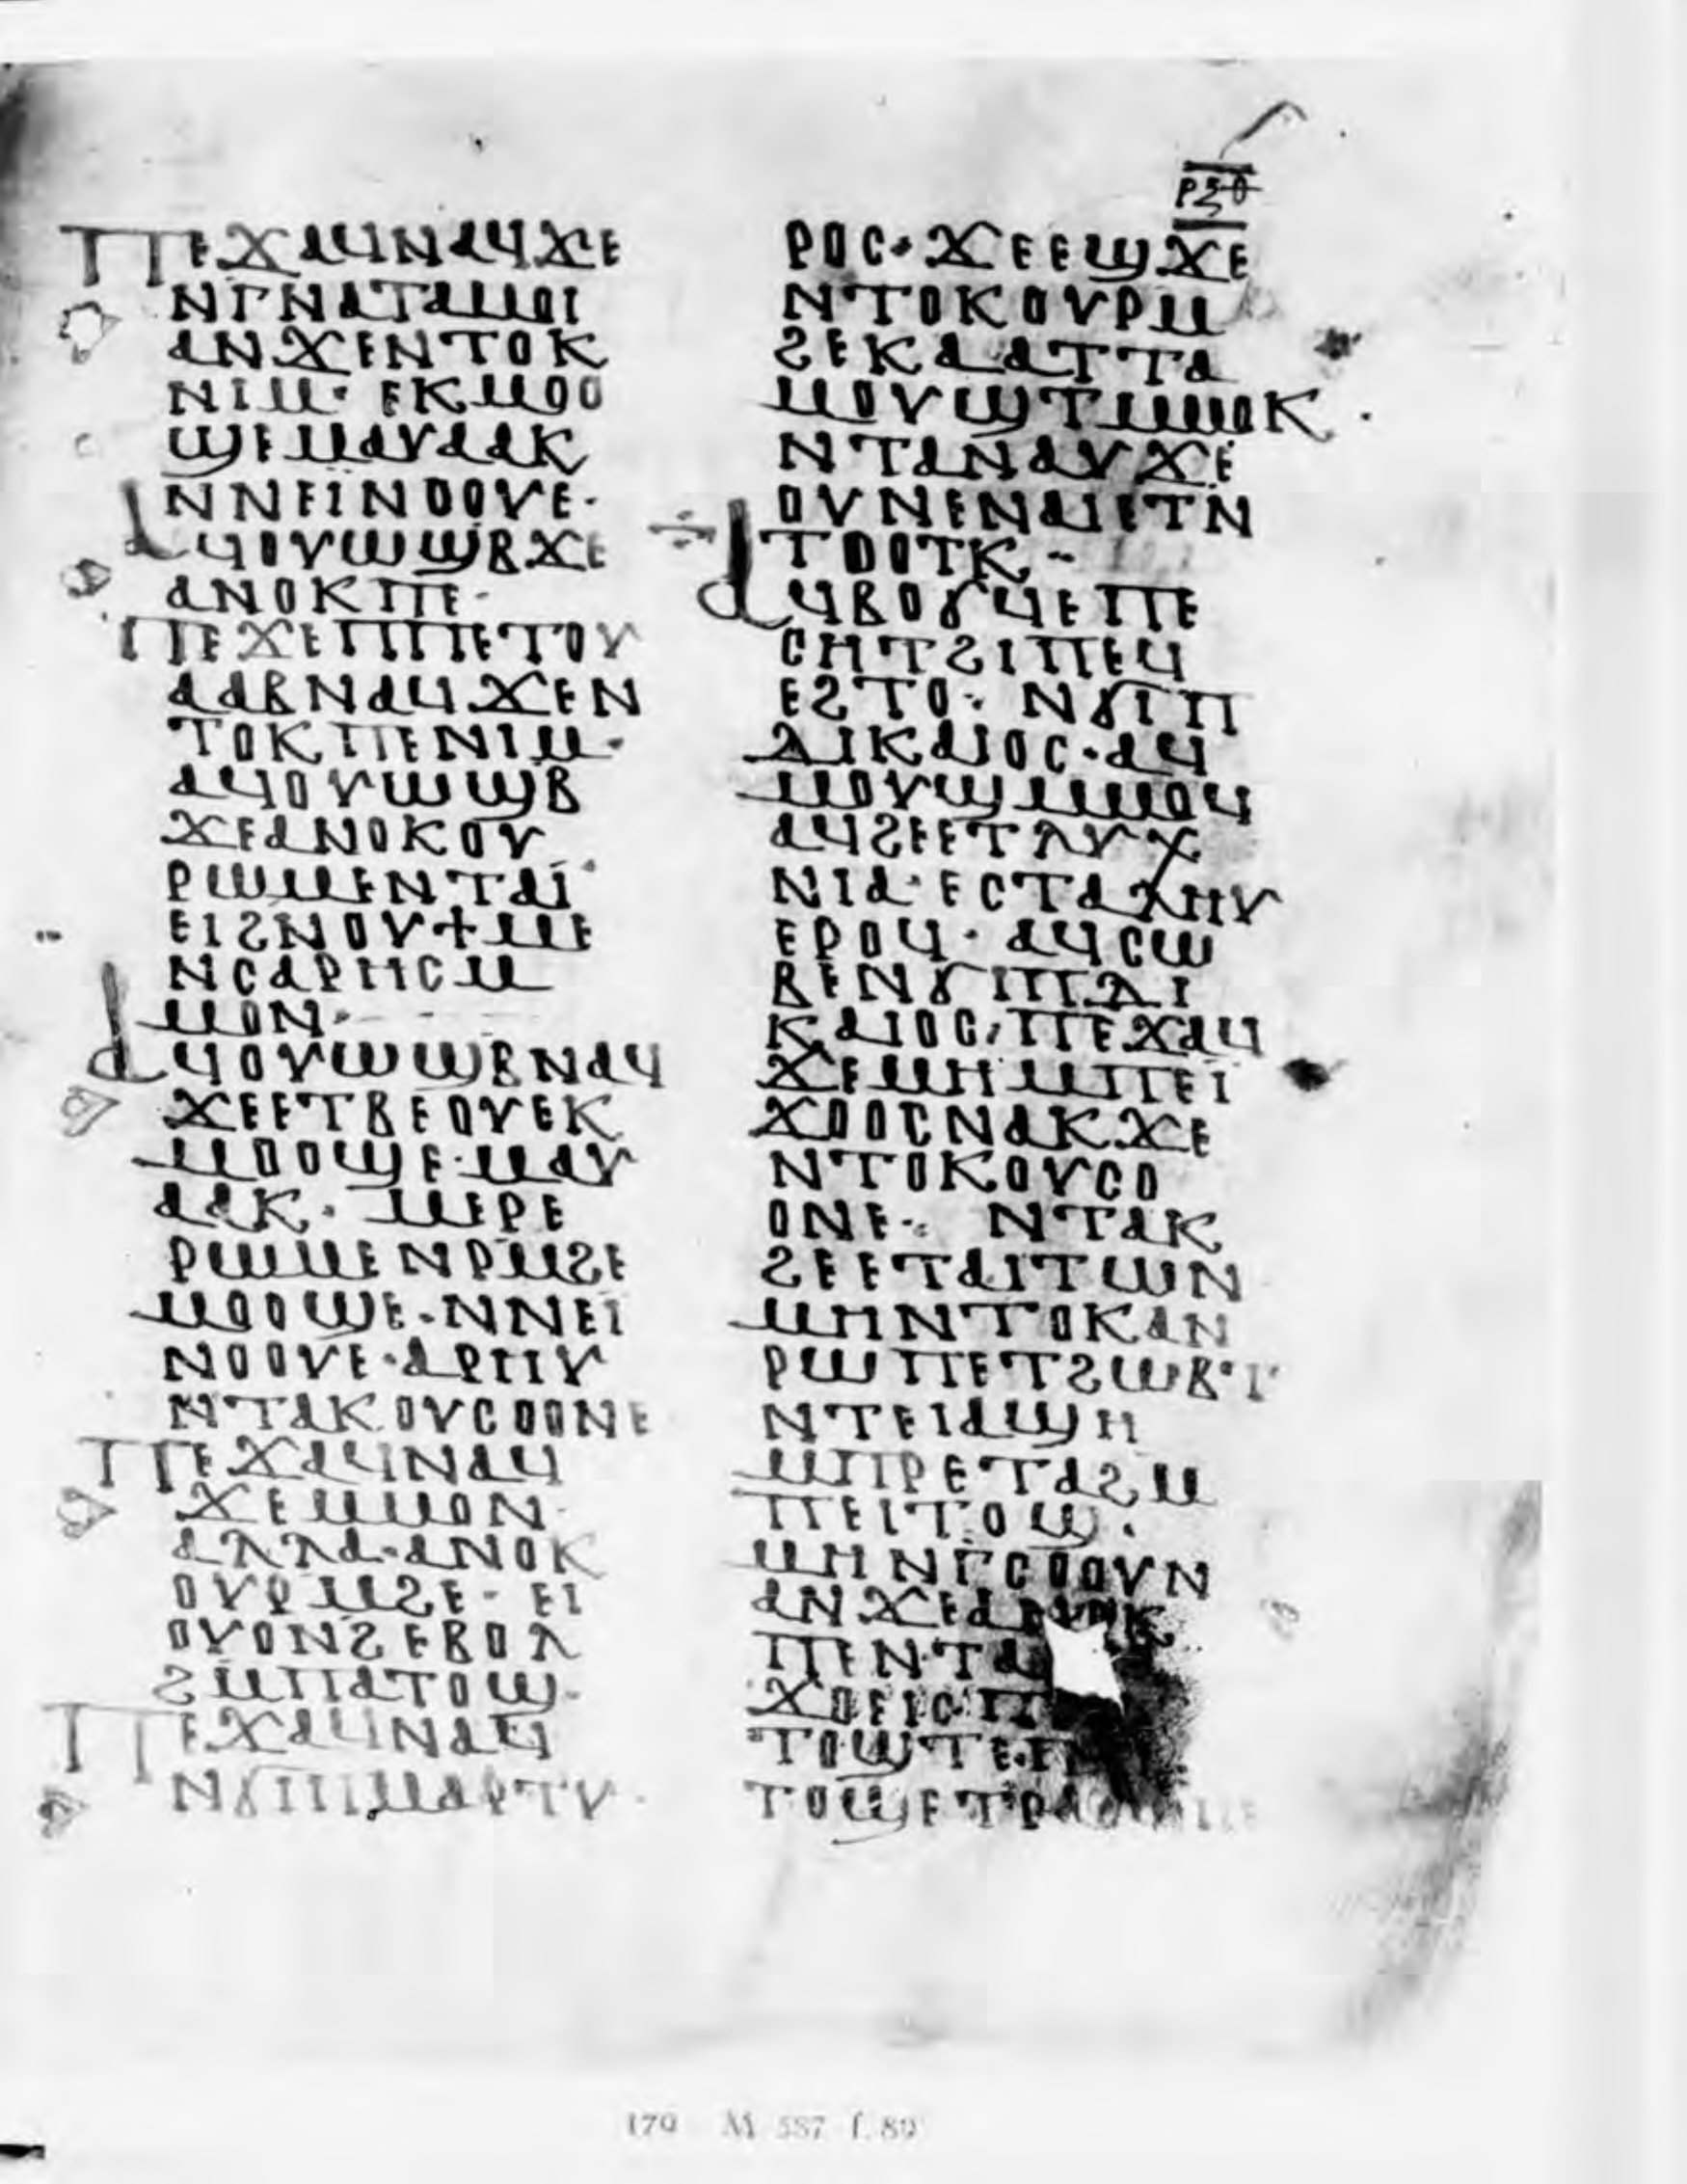 ⲣⲝⲑ
ⲡⲉϫⲁϥⲛⲁϥϫⲉ
ⲛⲅⲛⲁⲧⲁⲙⲟⲓ
ⲁⲛϫⲉⲛⲧⲟⲕ
ⲛⲓⲙ· ⲉⲕⲙⲟⲟ
ϣⲉⲙⲁⲩⲁⲁⲕ
ⲛⲛⲉⲓⲛⲟⲟⲩⲉ·
ⲁϥⲟⲩⲱϣⲃϫⲉ
ⲁⲛⲟⲕⲡⲉ·
ⲡⲉϫⲉⲡⲡⲉⲧⲟⲩ
ⲁⲁⲃⲛⲁϥϫⲉⲛ
ⲧⲟⲕⲡⲉⲛⲓⲙ·
ⲁϥⲟⲩⲱϣⲃ
ϫⲉⲁⲛⲟⲕⲟⲩ
ⲣⲱⲙⲉⲛⲧⲁⲓ̈
ⲉⲓϩⲛⲟⲩϯⲙⲉ
ⲛⲥⲁⲣⲏⲥⲙ
ⲙⲟⲛ·
ⲁϥⲟⲩⲱϣⲃⲛⲁϥ
ϫⲉⲉⲧⲃⲉⲟⲩⲉⲕ
ⲙⲟⲟϣⲉ·ⲙⲁⲩ
ⲁⲁⲕ· ⲙⲉⲣⲉ
ⲣⲱⲙⲉⲛⲣⲙϩⲉ
ⲙⲟⲟϣⲉ·ⲛⲛⲉⲓ̈
ⲛⲟⲟⲩⲉ·ⲁⲣⲏⲩ
ⲛⲧⲁⲕⲟⲩⲥⲟⲟⲛⲉ
ⲡⲉϫⲁϥⲛⲁϥ
ϫⲉⲙⲙⲟⲛ·
ⲁⲗⲗⲁ·ⲁⲛⲟⲕ
ⲟⲩⲣⲙϩⲉ· ⲉⲓ
ⲟⲩⲟⲛϩⲉⲃⲟⲗ
ϩⲙⲡⲁⲧⲟϣ·
ⲡⲉϫⲁϥⲛⲁϥ
ⲛϭⲓⲡⲙⲁⲣⲧⲩ
ⲣⲟⲥ·ϫⲉⲉϣϫⲉ
ⲛⲧⲟⲕⲟⲩⲣⲙ
ϩⲉⲕⲁⲁⲧⲧⲁ
ⲙⲟⲩϣⲧⲙⲙⲟⲕ·
ⲛⲧⲁⲛⲁⲩϫⲉ
ⲟⲩⲛⲉⲛⲁⲓⲉⲧⲛ
ⲧⲟⲟⲧⲕ·
ⲁϥⲃⲟϭϥⲉⲡⲉ
ⲥⲏⲧϩⲓⲡⲉϥ
ⲉϩⲧⲟ· ⲛϭⲓⲡ
ⲇⲓⲕⲁⲓⲟⲥ·ⲁϥ
ⲙⲟⲩϣⲧⲙⲙⲟϥ
ⲁϥϩⲉⲉⲧⲗⲩⲭ
ⲛⲓⲁ·ⲉⲥⲧⲁⲗⲏⲩ
ⲉⲣⲟϥ· ⲁϥⲥⲱ
ⲃⲉⲛϭⲓⲡⲇⲓ
ⲕⲁⲓⲟⲥ·ⲡⲉϫⲁϥ
ϫⲉⲙⲏⲙⲡⲉⲓ
ϫⲟⲟⲥⲛⲁⲕϫⲉ
ⲛⲧⲟⲕⲟⲩⲥⲟ
ⲟⲛⲉ· ⲛⲧⲁⲕ
ϩⲉⲉⲧⲁⲓⲧⲱⲛ
ⲙⲏⲛⲧⲟⲕⲁⲛ
ⲣⲱⲡⲉⲧϩⲱⲃ·
ⲛⲧⲉⲓⲁϣⲏ
ⲙⲡⲣⲉⲧⲁϩⲙ
ⲡⲉⲓⲧⲟϣ·
ⲙⲏⲛⲅⲥⲟⲟⲩⲛ
ⲁⲛϫⲉⲁⲛⲟⲕ
ⲡⲉⲛⲧⲁ
ϫⲟⲉⲓⲥ
ⲧⲟϣⲧⲉ·
ⲧⲟϣⲉⲧⲣⲁ
179 M 587 f. 89